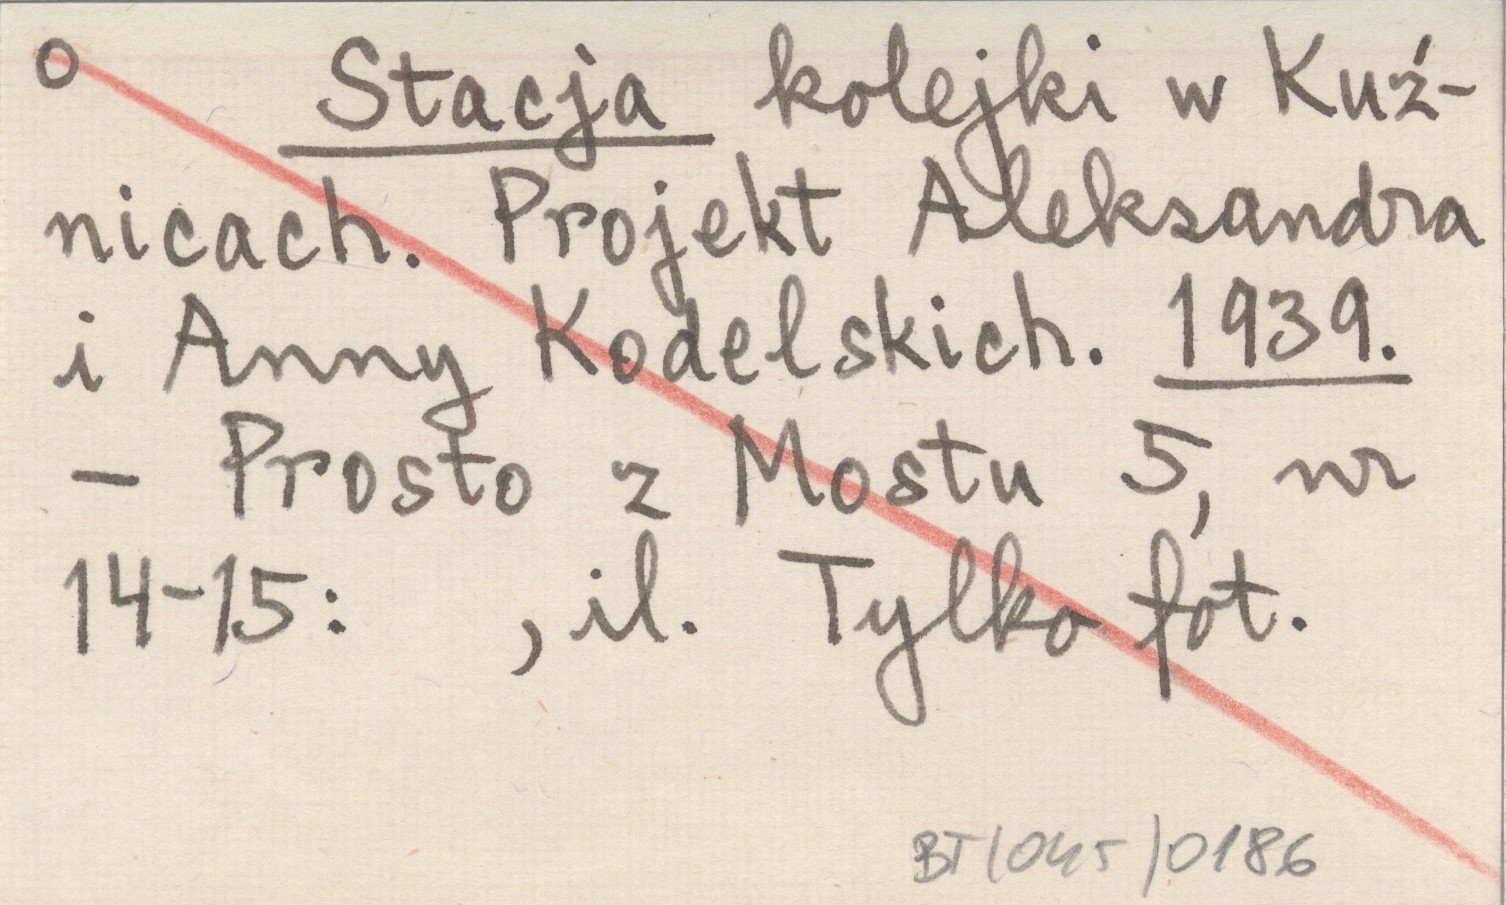 o Stacja kolejki w Kuź-
nicach. Projekt Aleksandra
i Anny Kodelskich. 1939.
– Prosto z Mostu 5, nr
14-15: , il. Tylko fot.
BT/045/0186